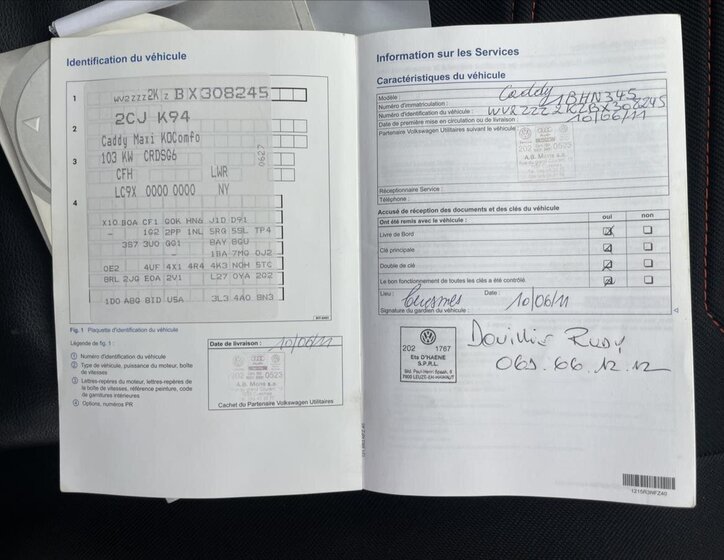 Identification du véhicule
1
WV2ZZZ2KZBX308245
2CJ K94
2
Caddy Maxi KOComfo
103 KW CRDSG6
3
0627
CFH LWR
LC9X 0000 0000 NY
4
X10 B0A CF1 Q0K HN6 J1D D91
- 1G2 2PP 1NL SRG 5SL TP4
3S7 3U0 GG1 8AY 8GU
- 1BA 7MG 0J2
0E2 4UF 4X1 4R4 4K3 N0H 5TC
8RL 2JG E0A 2V1 L27 0YA 2G2
1D0 A8G B1D U5A 3L3 4A0 8N3
Fig. 1 Plaquette d'identification du véhicule
Légende de fig. 1 :
1 Numéro d'identification du véhicule
2 Type de véhicule, puissance du moteur, boîte
de vitesses
3 Lettres-repères du moteur, lettres-repères de
la boîte de vitesses, référence peinture, code
de garnitures intérieures
4 Options, numéros PR
Date de livraison : 10/06/11
202 0523
Cachet du Partenaire Volkswagen Utilitaires
Information sur les Services
Caractéristiques du véhicule
Modèle : Caddy
Numéro d'immatriculation : 1BHN345
Numéro d'identification du véhicule : WV2ZZZ2KZBX308245
Date de première mise en circulation ou de livraison : 10/06/11
Partenaire Volkswagen Utilitaires suivant le véhicule :
202 0523
Réceptionnaire Service :
Téléphone :
Accusé de réception des documents et des clés du véhicule
Ont été remis avec le véhicule : oui non
Livre de Bord
Clé principale
Double de clé
Le bon fonctionnement de toutes les clés a été contrôlé.
Lieu : Cuesmes Date : 10/06/11
Signature du gardien du véhicule :
202 1767
Ets D'HAENE
S.P.R.L.
Bld. Paul-Henri Spaak, 8
7900 LEUZE-EN-HAINAUT
Rudy
065.66.12.12
1215R3NFZ40